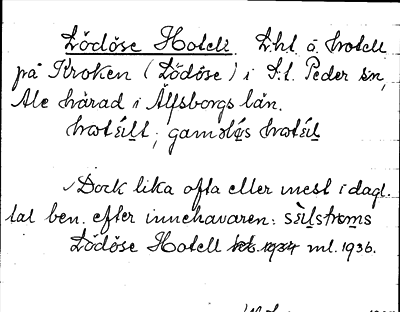 Lödöse Hotell. Lht o. hotell
på Kroken (Lödöse) i S:t Peder sn,
Ale härad i Älfsborgs län.
hʊtɛ́ll; gaməlø̀s hʊtɛ́l
Dock lika ofta eller mest i dagl.
tal ben. efter innehavaren: sɛ̀lstrøms
Lödöse Hotell ml. 1936.